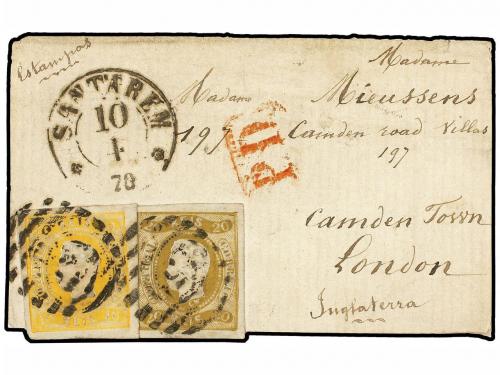 Estampas
SANTAREM
10
4
70
Madame
197
P.D.
Madame
Mieussens
Camden road Villas
197
Camden Town
London
Inglaterra
20
20
20